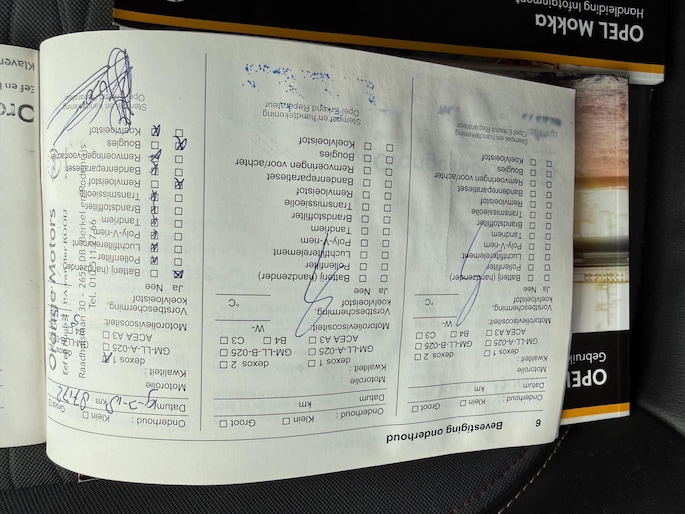 OPEL Mokka
Handleiding Infotainment
OPEL
Gebruik
6
Bevestiging onderhoud
Onderhoud : Klein Groot
Datum km
Motorolie
Kwaliteit:
dexos 1 dexos 2
GM-LL-A-025 GM-LL-B-025
ACEA A3 B4 C3
Motorolieviscositeit:
W-
Vorstbescherming koelvloeistof °C
Ja Nee
Batterij (handzender)
Pollenfilter
Luchtfilterelement
Poly-V-riem
Tandriem
Brandstoffilter
Transmissieolie
Remvloeistof
Bandenreparatieset
Remvoeringen voor/achter
Bougies
Koelvloeistof
Stempel en handtekening
Opel Erkend Reparateur
Onderhoud : Klein Groot
Datum km
Motorolie
Kwaliteit:
dexos 1 dexos 2
GM-LL-A-025 GM-LL-B-025
ACEA A3 B4 C3
Motorolieviscositeit:
W-
Vorstbescherming koelvloeistof °C
Ja Nee
Batterij (handzender)
Pollenfilter
Luchtfilterelement
Poly-V-riem
Tandriem
Brandstoffilter
Transmissieolie
Remvloeistof
Bandenreparatieset
Remvoeringen voor/achter
Bougies
Koelvloeistof
Stempel en handtekening
Opel Erkend Reparateur
Onderhoud : Klein Groot
Datum km 87172
Motorolie
Kwaliteit:
dexos 1
GM-LL-A-025
ACEA A3
Motorolieviscositeit:
Vorstbescherming koelvloeistof
Ja Nee
Batterij (handzender)
Pollenfilter
Luchtfilterelement
Poly-V-riem
Tandriem
Brandstoffilter
Transmissieolie
Remvloeistof
Bandenreparatieset
Remvoeringen voor/achter
Bougies
Koelvloeistof
Stempel en handtekening
Orange Motors
Tel.